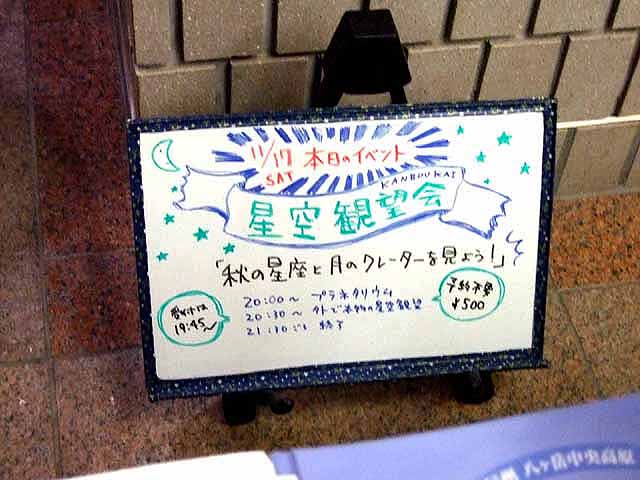 11/17 本日のイベント
SAT
KANBOUKAI
星空観望会
「秋の星座と月のクレーターを見よう!」
20:00～ プラネタリウム
20:30～ 外で本物の星空観望
21:30ごろ 終了
受付は
19:45～
予約不要
¥500
八ヶ岳中央高原